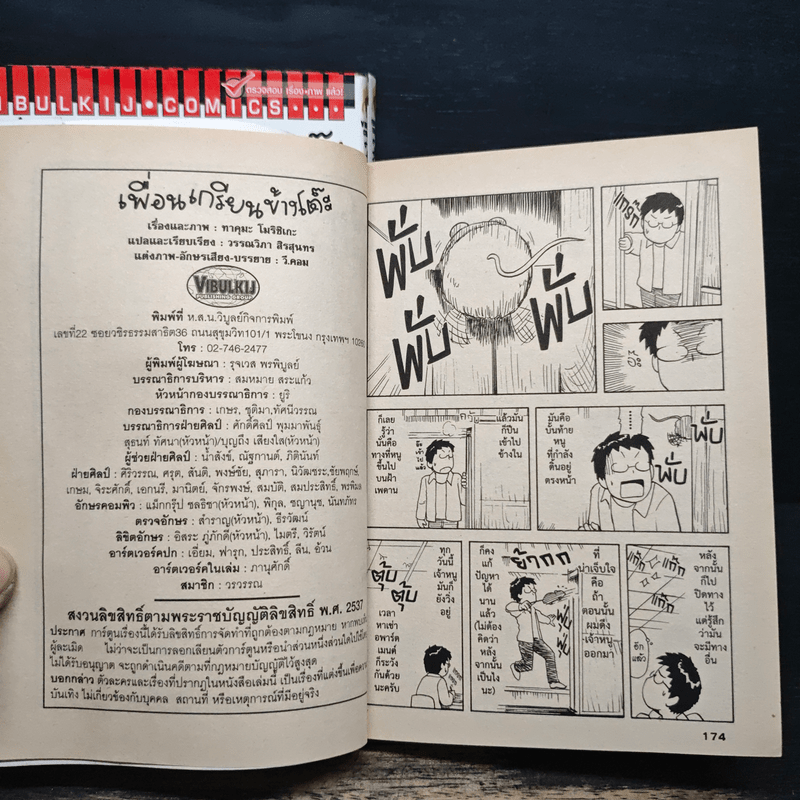 IBULKIJ•COMICS•••
ตรวจสอบ เรื่อง•ภาพ แล้ว!
เพื่อนเกรียนข้างโต๊ะ
เรื่องและภาพ : ทาคุมะ โมริชิเกะ
แปลและเรียบเรียง : วรรณวิภา สิรสุนทร
แต่งภาพ-อักษรเสียง-บรรยาย : วี.คอม
VIBULKIJ
PUBLISHING GROUP
พิมพ์ที่ ห.ส.น.วิบูลย์กิจการพิมพ์
เลขที่22 ซอยวชิรธรรมสาธิต36 ถนนสุขุมวิท101/1 พระโขนง กรุงเทพฯ 10260
โทร : 02-746-2477
ผู้พิมพ์ผู้โฆษณา : รุจเวส พรพิบูลย์
บรรณาธิการบริหาร : สมหมาย สระแก้ว
หัวหน้ากองบรรณาธิการ : ยูริ
กองบรรณาธิการ : เกษร, ชุติมา,ทัศนีวรรณ
บรรณาธิการฝ่ายศิลป์ : ศักดิ์ศิลป์ พุมมาพันธุ์
สุธนท์ ทัศนา(หัวหน้า)/บุญถึง เสียงใส(หัวหน้า)
ผู้ช่วยฝ่ายศิลป์ : น้ำสังข์, ณัฐกานต์, ภิตินันท์
ฝ่ายศิลป์ : ศิริวรรณ, ศรุต, สันติ, พงษ์ชัย, สุภารา, นิวัฒชระ,ชัยพฤกษ์,
เกษม, จิระศักดิ์, เอกนรี, มานิตย์, จักรพงษ์, สมบัติ, สมประสิทธิ์, พรพิมล
อักษรคอมพิว : แม็กกรุ๊ป ชลธิชา(หัวหน้า), พิกุล, ชญานุช, นันทภัทร
ตรวจอักษร : สำราญ(หัวหน้า), ธีรวัฒน์
ลิขิตอักษร : อิสระ ภู่ภักดี(หัวหน้า), ไมตรี, วิรัตน์
อาร์ตเวอร์คปก : เอี่ยม, ฟารุก, ประสิทธิ์, ลีน, อ้วน
อาร์ตเวอร์คในเล่ม : ภานุศักดิ์
สมาชิก : วรวรรณ
สงวนลิขสิทธิ์ตามพระราชบัญญัติลิขสิทธิ์ พ.ศ. 2537
ประกาศ การ์ตูนเรื่องนี้ได้รับลิขสิทธิ์การจัดทำที่ถูกต้องตามกฎหมาย หากพบเห็น
ผู้ละเมิด ไม่ว่าจะเป็นการลอกเลียนตัวการ์ตูนหรือนำส่วนหนึ่งส่วนใดไปใช้โดย
ไม่ได้รับอนุญาต จะถูกดำเนินคดีตามที่กฎหมายบัญญัติไว้สูงสุด
บอกกล่าว ตัวละครและเรื่องที่ปรากฏในหนังสือเล่มนี้ เป็นเรื่องที่แต่งขึ้นเพื่อความ
บันเทิง ไม่เกี่ยวข้องกับบุคคล สถานที่ หรือเหตุการณ์ที่มีอยู่จริง
พั่บ
พั่บ
พั่บ
แกร๊ก
ก็เลย
รู้ว่า
นั่นคือ
ทางที่หนู
ขึ้นไป
บนฝ้า
เพดาน
แล้วมัน
ก็ปีน
เข้าไป
ข้างใน
มันคือ
บั้นท้าย
หนู
ที่กำลัง
ดิ้นอยู่
ตรงหน้า
พั่บ
พั่บ
ทุก
วันนี้
เจ้าหนู
มันก็
ยังวิ่ง
อยู่
ตุ้บ
ตุ้บ
เวลา
หาเช่า
อพาร์ต
เมนต์
ก็ระวัง
กันด้วย
นะครับ
ก็คง
แก้
ปัญหา
ได้
นาน
แล้ว
(ไม่ต้อง
คิดว่า
หลัง
จากนั้น
เป็นไง
นะ)
ย้ากกก
ที่
น่าเจ็บใจ
คือ
ถ้า
ตอนนั้น
ผมดึง
เจ้าหนู
ออกมา
หลัง
จากนั้น
ก็ไป
ปิดทาง
ไว้
แต่รู้สึก
ว่ามัน
จะมีทาง
อื่น
แก๊ก
แก๊ก
แก๊ก
อีก
แล้ว
174